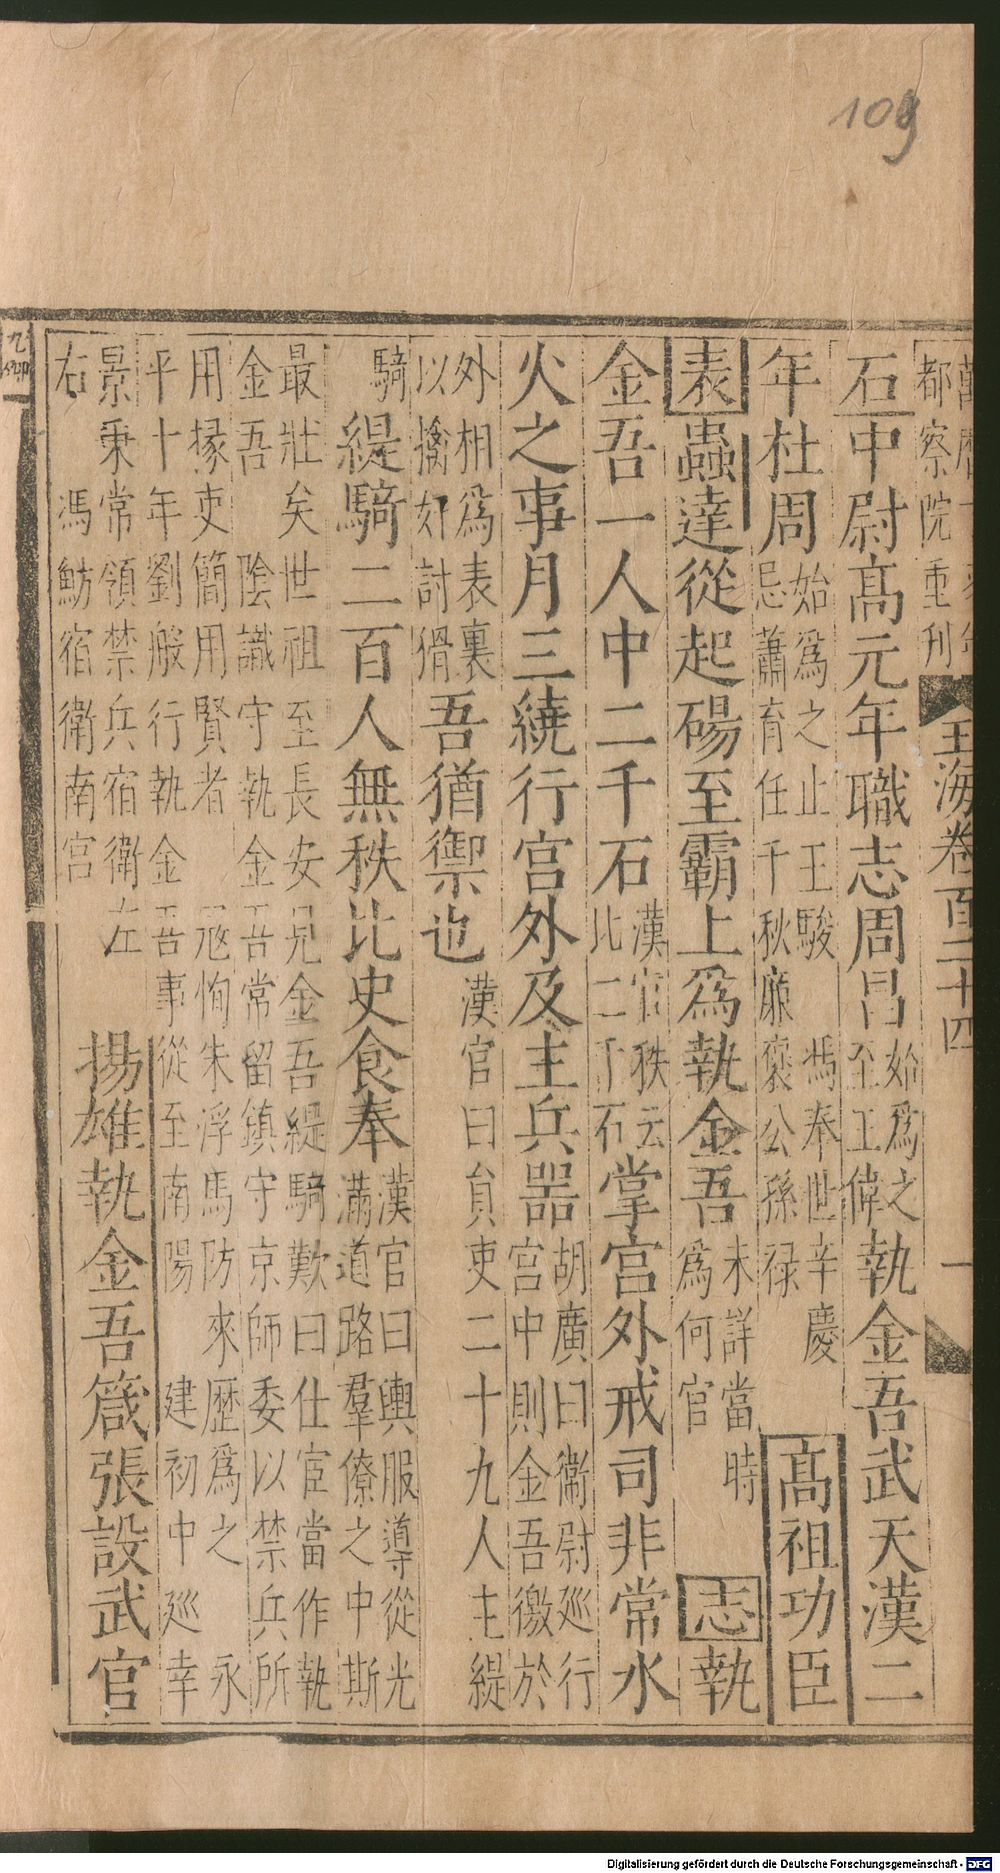 109
都察院重刊
玉海卷百二十四 一
石中尉高元年職志周昌始爲之至王偉執金吾武天漢二
年杜周始爲之止王駿 馮奉世辛慶忌蕭育任千秋廉褒公孫祿 高祖功臣
表蟲達從起碭至霸上爲執金吾未詳當時爲何官 志執
金吾一人中二千石漢官秩云比二千石掌宮外戒司非常水
火之事月三繞行宮外及主兵器胡廣曰衛尉巡行宮中則金吾徼於
外相爲表裏以擒奸討猾吾猶禦也漢官曰員吏二十九人主緹
騎緹騎二百人無秩比吏食奉漢官曰輿服導從光滿道路羣僚之中斯
最壯矣世祖至長安見金吾緹騎歎曰仕宦當作執
金吾 陰識守執金吾常留鎮守京師委以禁兵所
用掾吏簡用賢者 寇恂朱浮馬防來歷爲之 永
平十年劉般行執金吾事從至南陽 建初中廵幸
景秉常領禁兵宿衛左
右 馮魴宿衛南宮
揚雄執金吾箴張設武官
Digitalisierung gefördert durch die Deutsche Forschungsgemeinschaft - DFG